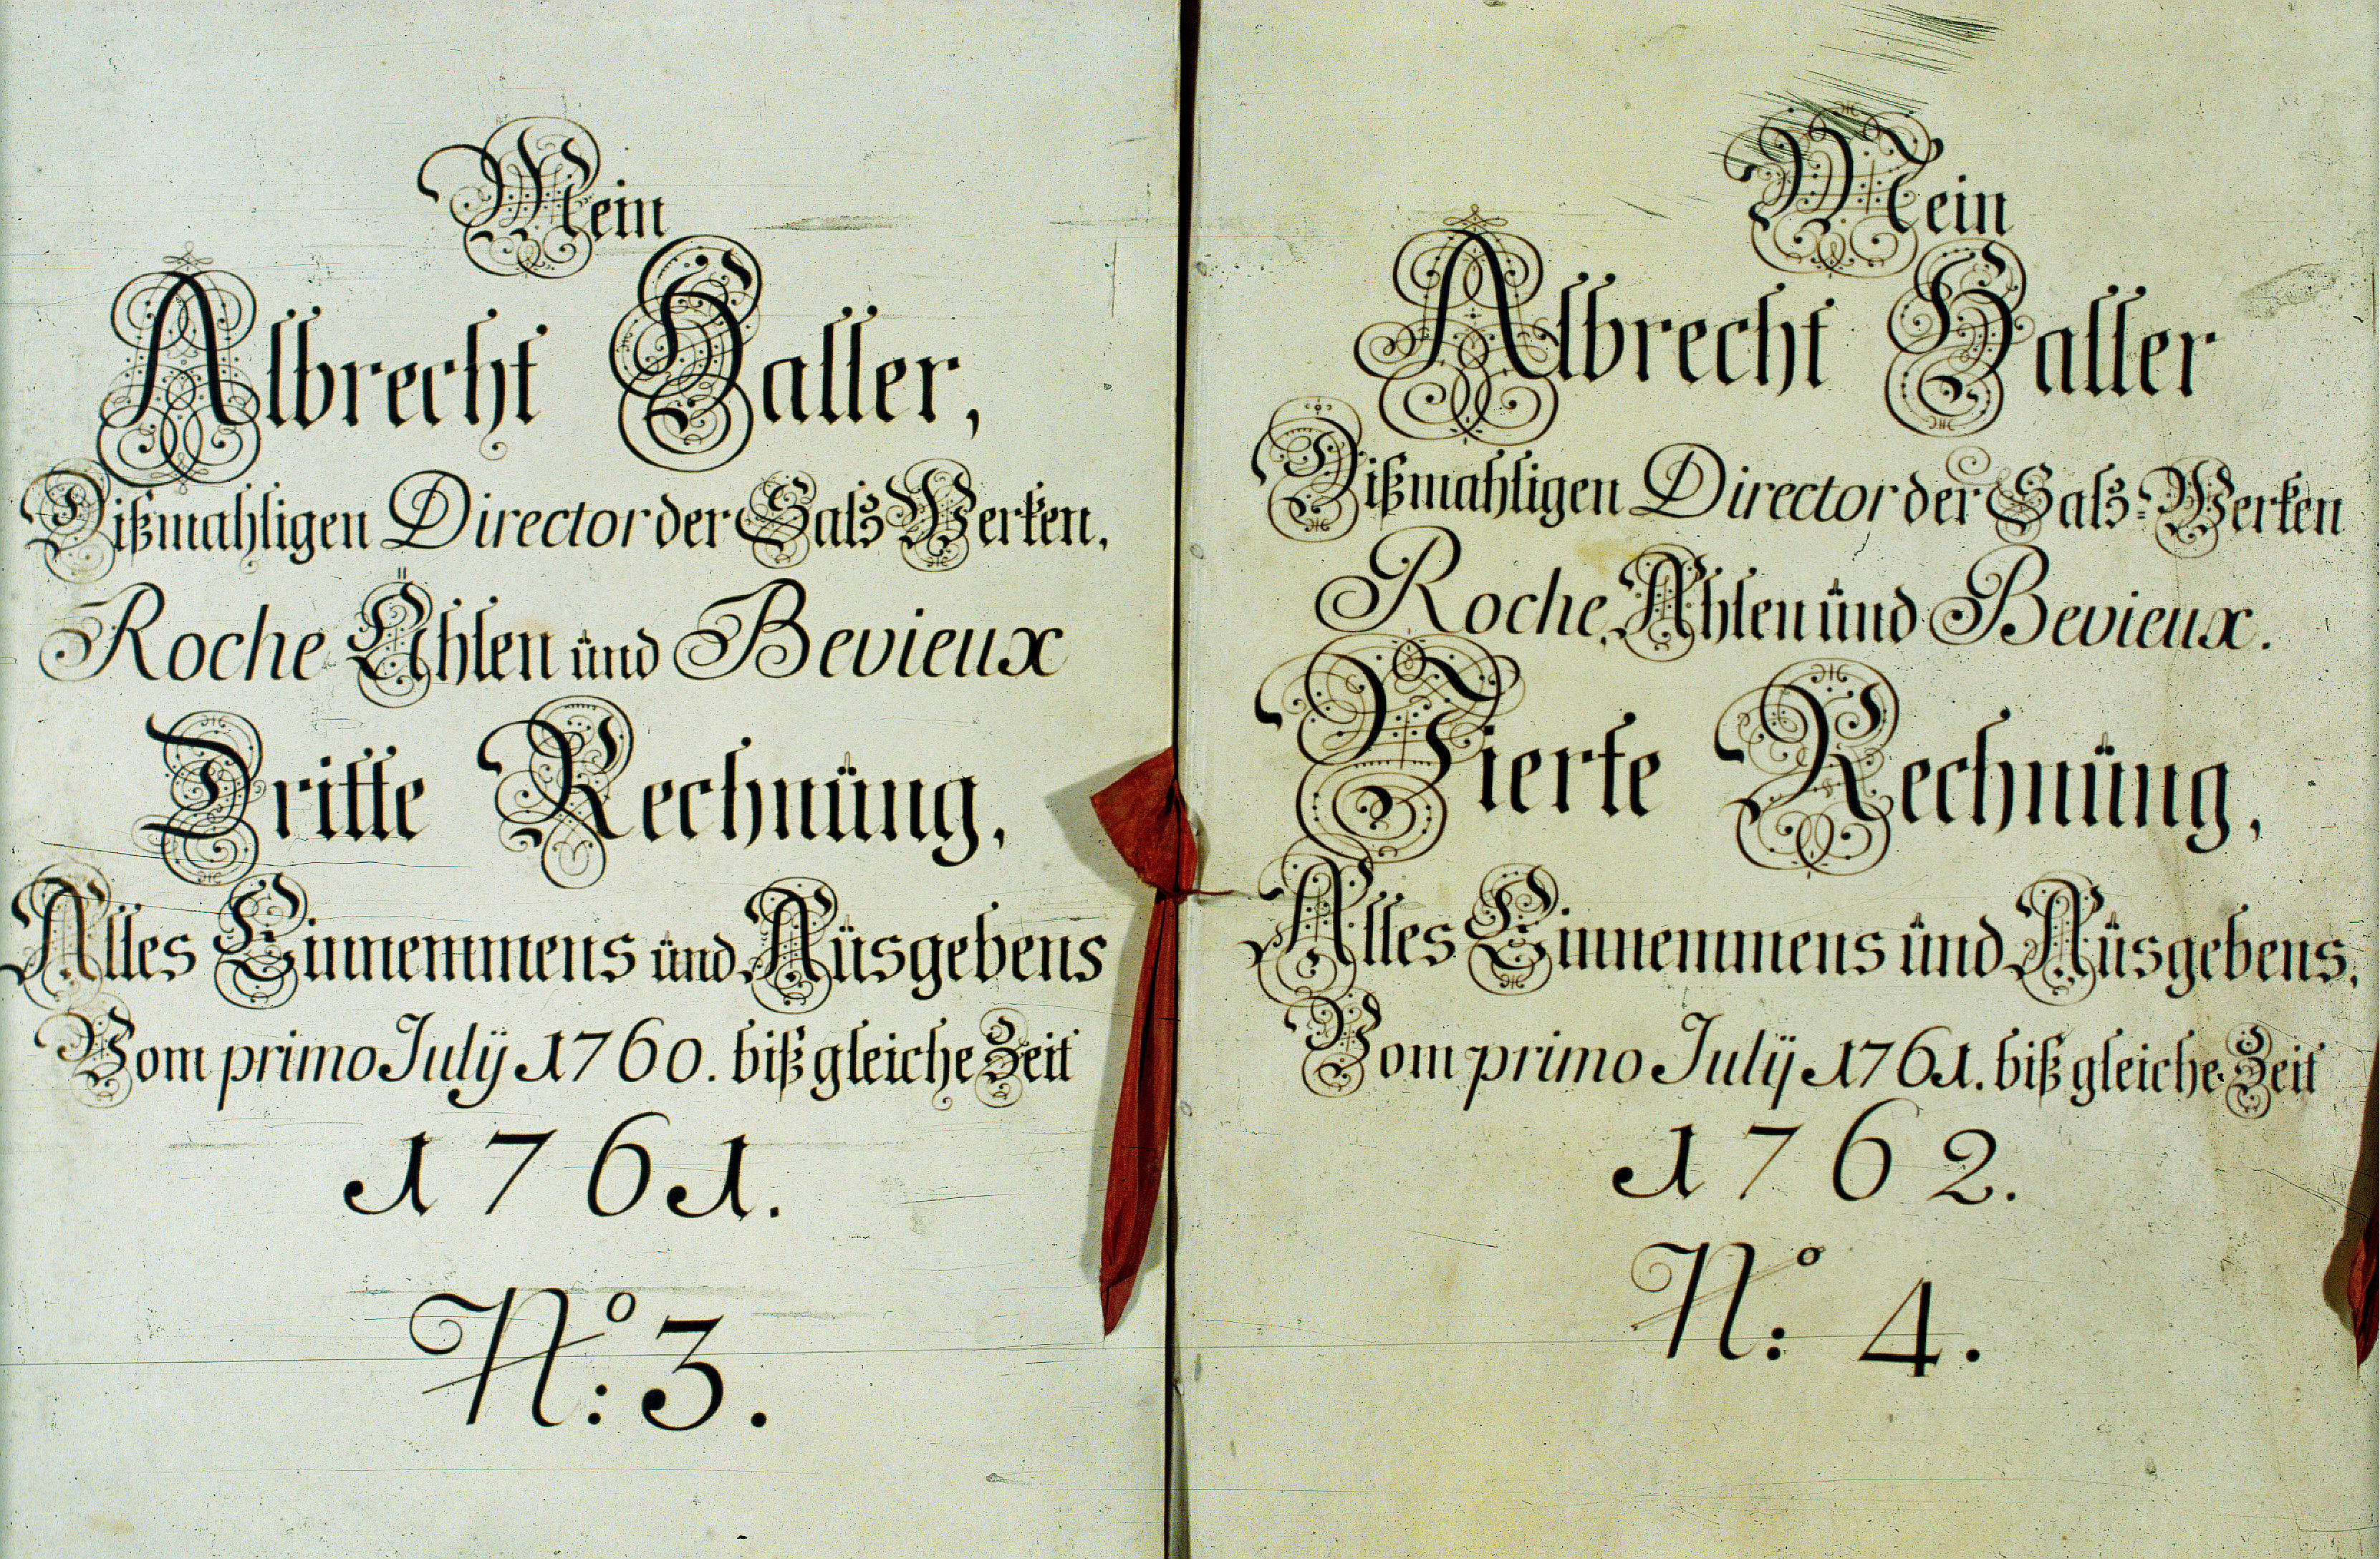 Mein
Albrecht Haller,
Dißmahligen Director der Saltz Werken,
Roche Ählen und Bevieux
Dritte Rechnüng,
Alles Einnemmens und Aüsgebens
Vom primo Julÿ 1760. biß gleiche Zeit
1761.
No: 3.
Mein
Albrecht Haller
Dißmahligen Director der Saltz-Werken
Roche, Ahlen und Bevieux.
Vierte Rechnüng,
Alles Einnemmens und Aüsgebens,
Vom primo Julÿ 1761. biß gleiche Zeit
1762.
No: 4.